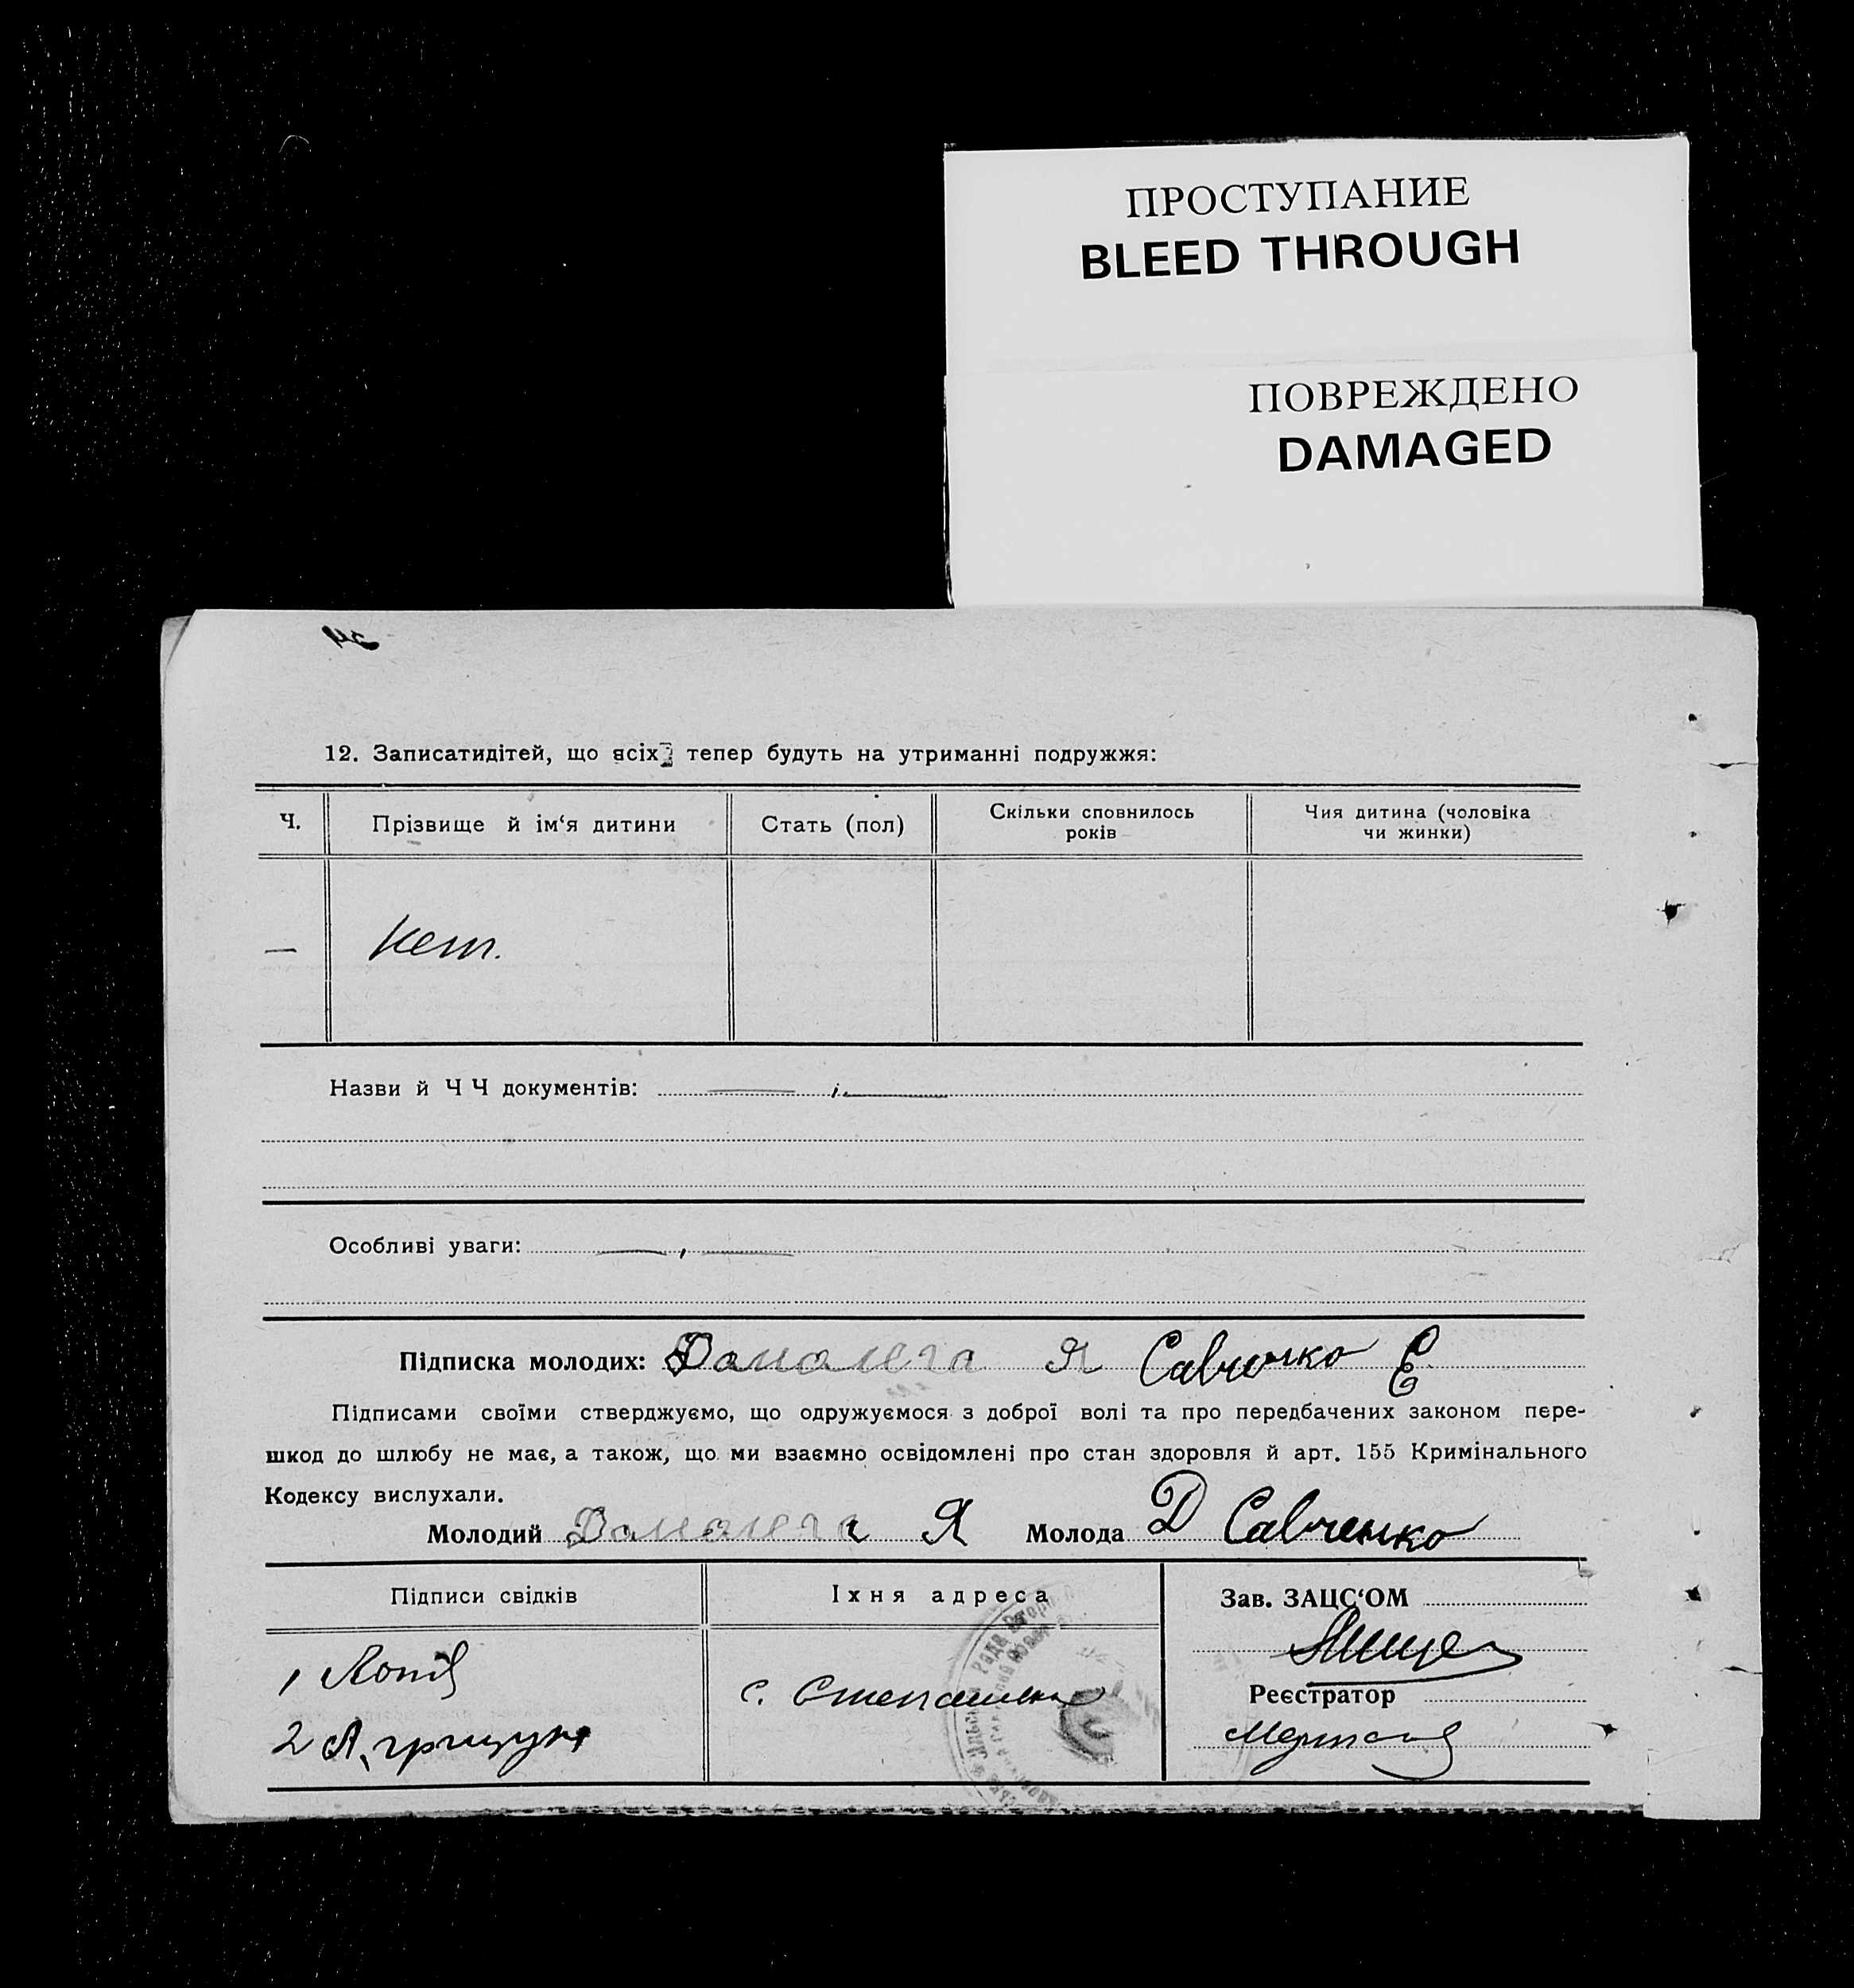 ПРОСТУПАНИЕ
BLEED THROUGH
ПОВРЕЖДЕНО
DAMAGED
12. Записатидітей, що всіх тепер будуть на утриманні подружжя:
Ч.
Прізвище й ім‘я дитини
Стать (пол)
Скільки сповнилось
років
Чия дитина (чоловіка
чи жинки)
—
Нет.
Назви й Ч Ч документів:
Особливі уваги:
Підписка молодих: Я Савченко Е
Підписами своїми стверджуємо, що одружуємося з доброї волі та про передбачених законом пере-
шкод до шлюбу не має, а також, що ми взаємно освідомлені про стан здоровля й арт. 155 Кримінального
Кодексу вислухали.
Молодий Я Молода Савченко
Підписи свідків
Їхня адреса
Зав. ЗАЦС‘ОМ
1
2
с.
Реєстратор